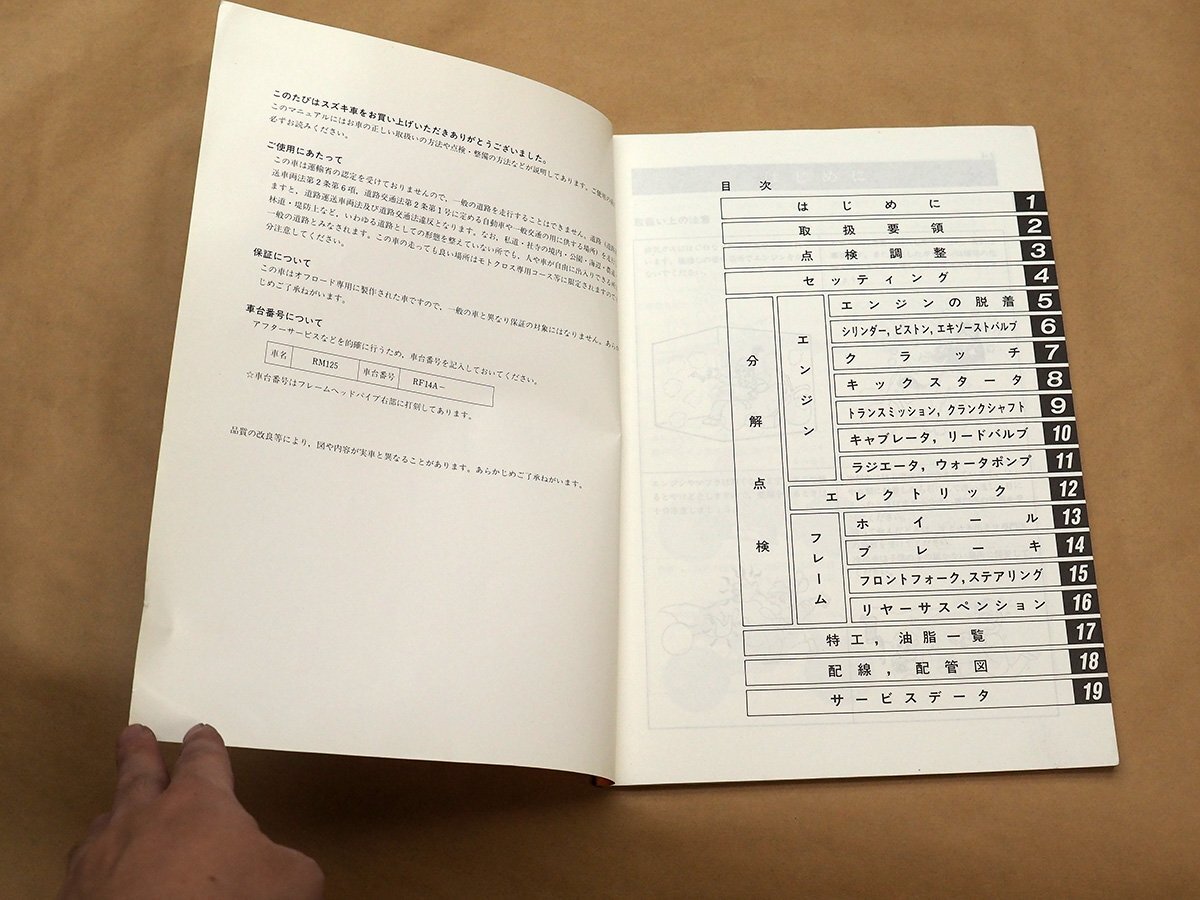 このたびはスズキ車をお買い上げいただきありがとうございました。
このマニュアルにはお車の正しい取扱いの方法や点検・整備の方法などが説明してあります。ご使用の前に
必ずお読みください。
ご使用にあたって
この車は運輸省の認定を受けておりませんので、一般の道路を走行することはできません。道路（道路運
送車両法第2条第6項，道路交通法第2条第1号に定める自動車や一般交通の用に供する場所）を走行し
ますと，道路運送車両法及び道路交通法違反となります。なお，私道・社寺の境内・公園・海辺・農道・
林道・堤防上など，いわゆる道路としての形態を整えていない所でも，人や車が自由に出入りできる所は
一般の道路とみなされます。この車の走っても良い場所はモトクロス専用コース等に限定されますので
分注意してください。
保証について
この車はオフロード専用に製作された車ですので，一般の車と異なり保証の対象にはなりません。あらか
じめご了承ねがいます。
車台番号について
アフターサービスなどを的確に行うため，車台番号を記入しておいてください。
車名 RM125 車台番号 RF14A−
☆車台番号はフレームヘッドパイプ右部に打刻してあります。
品質の改良等により，図や内容が実車と異なることがあります。あらかじめご了承ねがいます。
目次
はじめに 1
取扱要領 2
点検調整 3
セッティング 4
分解点検
エンジン
エンジンの脱着 5
シリンダー，ピストン，エキゾーストバルブ 6
クラッチ 7
キックスタータ 8
トランスミッション，クランクシャフト 9
キャブレータ，リードバルブ 10
ラジエータ，ウォータポンプ 11
エレクトリック 12
フレーム
ホイール 13
ブレーキ 14
フロントフォーク，ステアリング 15
リヤーサスペンション 16
特工，油脂一覧 17
配線，配管図 18
サービスデータ 19